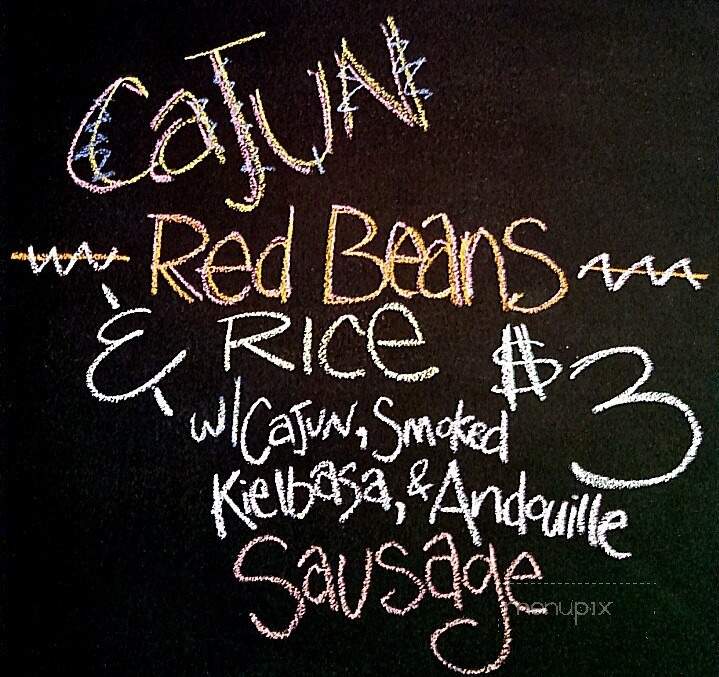 Cajun
Red Beans
& Rice $3
w/Cajun, Smoked
Kielbasa, & Andouille
Sausage
menupix